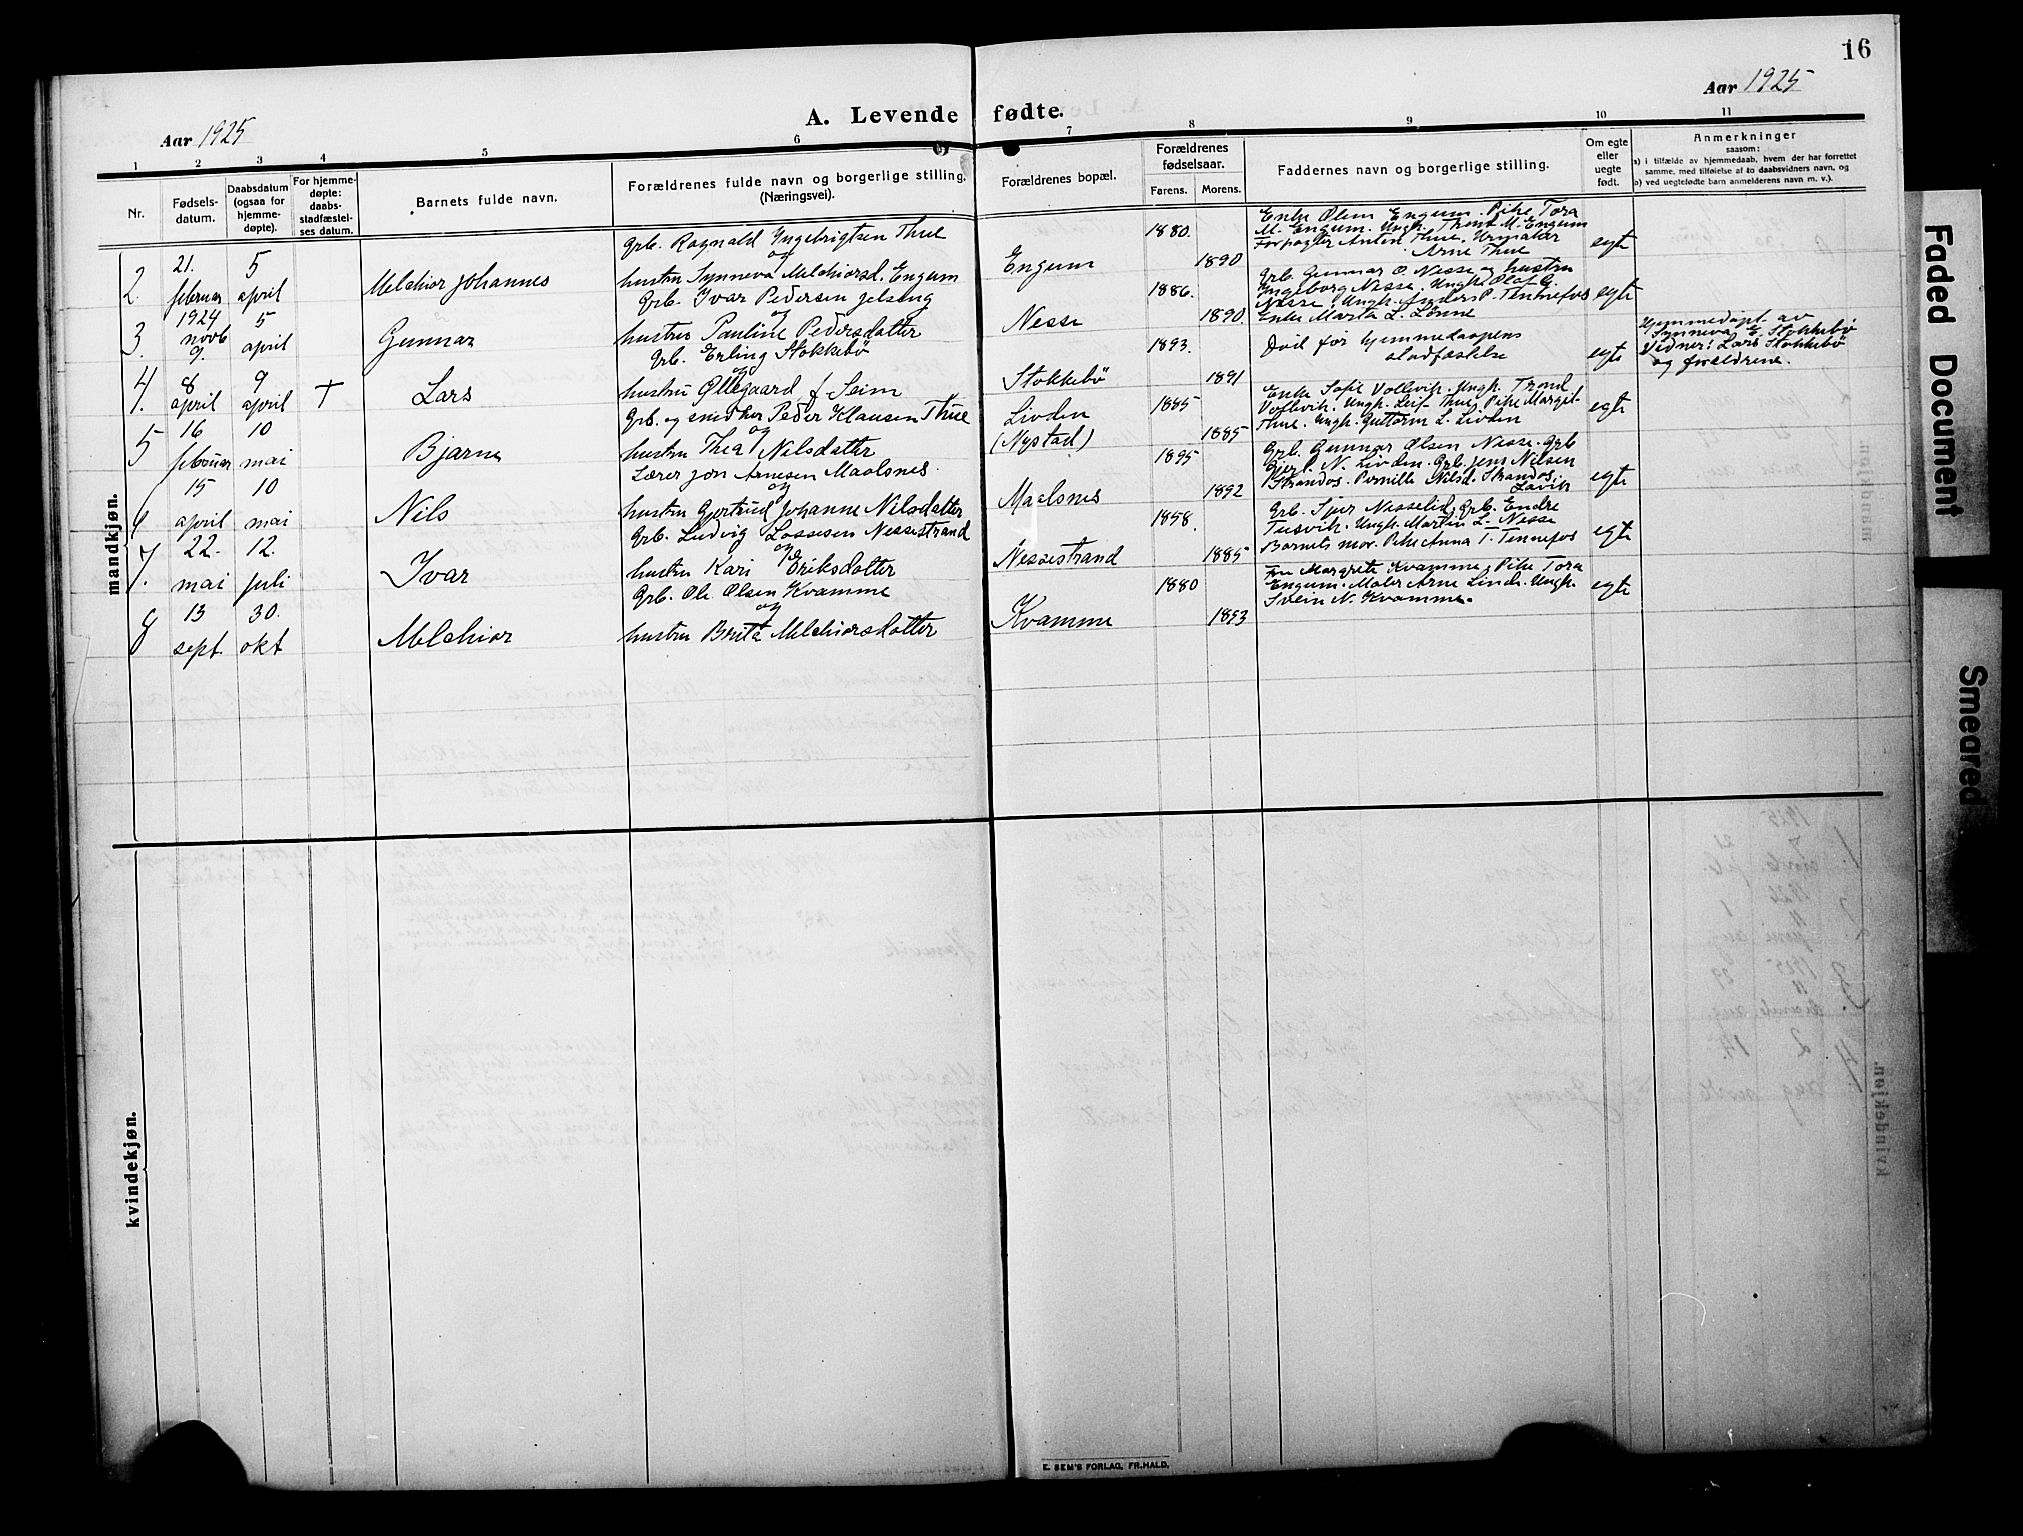 16
Aar 1925
A. Levende fødte.
Aar 1925
1 2 3 4 5 6 7 8 9 10 11
Nr.
Fødsels-
datum.
Daabsdatum
(ogsaa for
hjemme-
døpte).
For hjemme-
døpte:
daabs-
stadfæstel-
ses datum.
Barnets fulde navn.
Forældrenes fulde navn og borgerlige stilling.
(Næringsvei).
Forældrenes bopæl.
Forældrenes
fødselsaar.
Farens. Morens.
Faddernes navn og borgerlige stilling.
Om egte
eller
uegte
født.
Anmerkninger
saasom:
a) i tilfælde av hjemmedaab, hvem der har forrettet
samme, med tilføielse af to daabsvidners navn, og
b) ved uegtefødte barn anmelderens navn m. v.).
mandkjøn.
2.
21.
februar
5
april
Melchior Johannes
Grb. Ragnald Ingebrigtsen Thue
og
hustru Synneva Melchiorsd. Engum
Engum
1880.
1890
Enke Olina Engum. Pike Tora
M. Engum. Ungk. Trond M. Engum
Forpagter Anton Thue.
Arne Thue
egte
3.
1924
novb
9.
5
april
Gunnar
Grb. Ivar Pedersen Jelseng
og
hustru Pauline Pedersdatter
Nesse
1886.
1890.
Grb. Gunnar O. Nesse og hustru
Ingeborg Nesse. Ungk. Olaf G.
Nesse. Ungk. Anders P. Tennefos
Enke Marta L. Lønne
egte
4.
8
april
9
april
+
Lars
Grb. Erling Stokkebø
og
hustru Øllegaard f. Seim
Stokkebø
1893.
1891
Død før hjemmedaapens
stadfæstelse
egte
Hjemmedøpt av
Synneva E. Stokkebø
Vidner: Lars Stokkebø
og forældrene.
5
16
februar
10
mai
Bjarne
Grb. og snedker Peder Klausen Thue
og
hustru Thea Nilsdatter
Livden
(Nystad)
1885
1885
Enke Sofie Vollevik. Ungk. Trond
Vollevik. Ungk. Leif Thue, Pike Marget
Thue. Ungk. Guttorm L. Livden
egte
6
15
april
10
mai
Nils
Lærer Jon Arnesen Maalsnes.
og
hustru Gjertrud Johanne Nilsdatter
Maalsnes
1895
1892
Grb. Gunnar Olsen Nesse. Grb
Gjert N. Livden. Grb. Jens Nilsen
Strandos. Pernille Nilsd. Strandos,
Lavik
egte
7.
22.
mai
12.
juli
Ivar
Grb. Ludvig Lassesen Nessestrand
og
hustru Kari Eriksdatter
Nessestrand
1858.
1885
Grb. Sjur Nesselid, Grb. Endre
Tusvik. Ungk. Martin L. Nesse
Barnets mor. Pike Anna I. Tennefos
egte
8
13
sept.
30.
okt
Melchior
Grb. Ole Olsen Kvamme
og
hustru Brita Melchiorsdatter
Kvamme
1880
1893
Fru Margrete Kvamme, Pike Tora
Engum. Maler Arne Lind. Ungk.
Svein N. Kvamme.
egte
kvindekjøn.
E. SEM'S FORLAG, FR.HALD.
Faded Document
Smeared